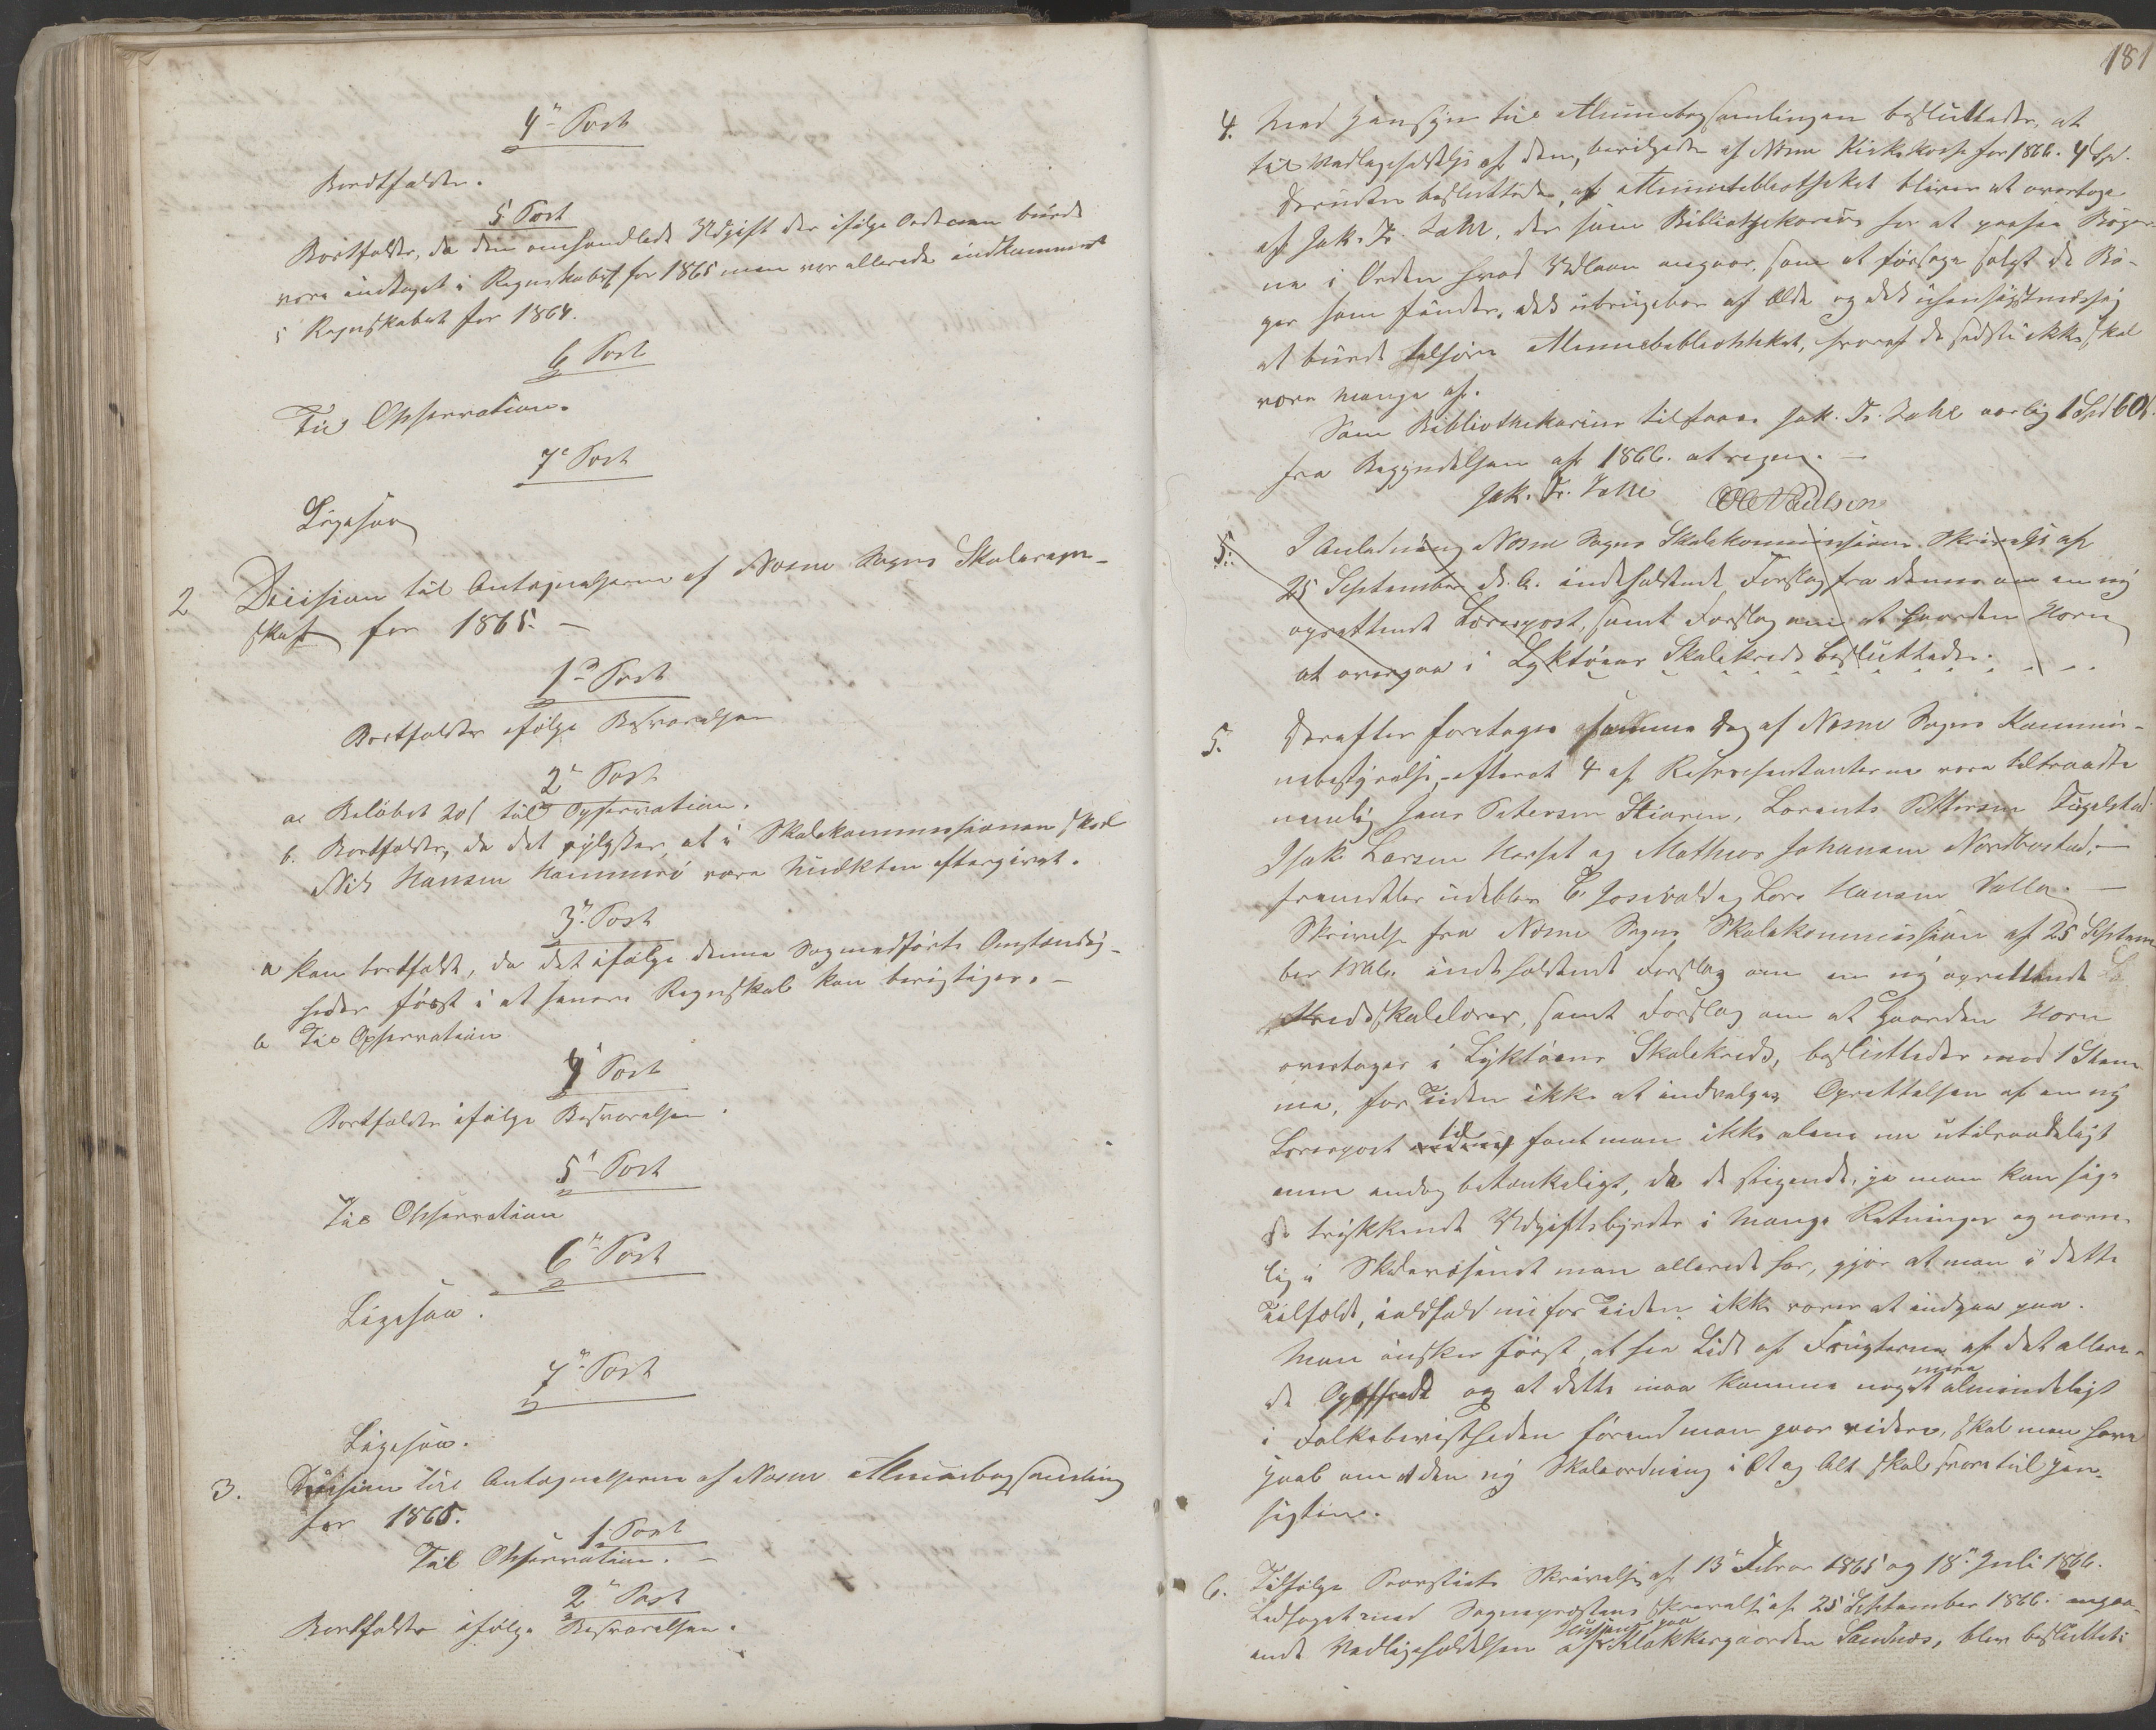 4de Post
Bortfalder.
5 Post
Bortfalder, da den omhandlede Udgift der ifølge Ordenen burde
være indtaget i Regnskabet for 1865 men var allerede indkommet
i Regnskabet for 1864.
6 Post
Til Observation.
7de Post
Ligesaa
2 Decision til Antegnelserne af Nesne Sogns Skoleregn-
skab for 1865. —
1ste Post
Bortfalder ifølge Besvarelsen
2de Post
a. Beløbet 20 s til Observation.
b. Bortfalder, da det oplyses, at i Skolekommissionen skal
Nils Hansen Hammerø være Mulkten eftergivet.
3de Post
a kan bortfalde, da det ifølge denne Sag medførte Omstændig-
heder først i et senere Regnskab kan berigtiges. —
b Til Observation
4de Post
Bortfalder ifølge Besvarelsen.
5te Post
Til Observation
6te Post
Ligesaa.
7de Post
Ligesaa.
3. Decision til Antegnelserne af Nesne Almuebogsamling
for 1865.
1. Post
Til Observation. —
2den Post
Bortfalder ifølge Besvarelsen.
181
4. Med Hensyn til Almuebogsamlingen besluttedes, at
til Vedligeholdelse af dem, bevilgedes af Nesne Kirkekasse for 1866. 4 Spd.
Desuden besluttedes, at Almuebibliotheket bliver at overtage
af Jak. Fr. Zahl, der som Bibliothekarius har at paase Bøger-
ne i Orden hvad Udlaan angaar, som at forsøge solgt de Bø-
ger som findes, dels ubrugebar af Ælde og dels uhensigtmessig
at burde tilhøre Almuebibliotheket, hvoraf de sidste ikke skal
være mange af.
Som Bibliothekarius tilstaaes Jak. Fr. Zahl aarlig 1 Spd 60 s.
fra Begyndelsen af 1866. at regne. —
Jak. Fr. Zahl Ole Paulsen
5. I Anledning Nesne Sogns Skolekommissions Skrivelse af
25 September d. A. indeholdende Forslag fra denne om en ny
oprettende Lærerpost, samt Forslag om at Gaarden Horn
at overgaa i Lyktøens Skolekreds besluttedes.
5. Derefter foretoges samme Dag af Nesne Sogns Kommu-
nebestyrelse, efterat 4 af Repræsentanterne vare tiltraadte
nemlig Jens Petersen Skiaren, Lorents Pettersen
Isak Larsen og Mathias Johansen —
fremdeles udeblev C. og Lars Hansen Valla. —
Skrivelse fra Nesne Sogns Skolekommission af 25 Septem
ber 1866. indeholdende Forslag om en ny oprettende
Kredsskolelærer, samt Forslag om at Gaarden Horn
overtages i Lyktøens Skolekreds, besluttedes mod 1 Stem
me, for Tiden ikke at indvælges Oprettelsen af en ny
Lærerpost til fandt man ikke alene nu utilraadeligt
men endog betænkeligt, da de stigende, ja man kan sige
de trykkende Udgiftsbyrder i mange Retninger og navn-
lig i Skolevæsenet man allerede har, gjør at man i dette
Tilfælde, ialdfald nu for Tiden, ikke vover at indgaa paa.
Man ønsker først, at see Lidt af Frugterne af det allere-
de Opoffrede og at dette maa komme noget mere almindeligt
i Folkebevistheden førend man gaar videre, skal man have
Haab om at den ny Skoleordning i Et og Alt skal svare til Hen-
sigten.
6. Tilfølge Provstiets Skrivelse af 13de Februar 1865 og 18de Juli 1866.
Ledsaget med Sognepræstens Skrivelse af 25 September 1866. angaa-
ende Vedligeholdelsen af Husene paa Klokkergaarden Sandnes, blev besluttet: